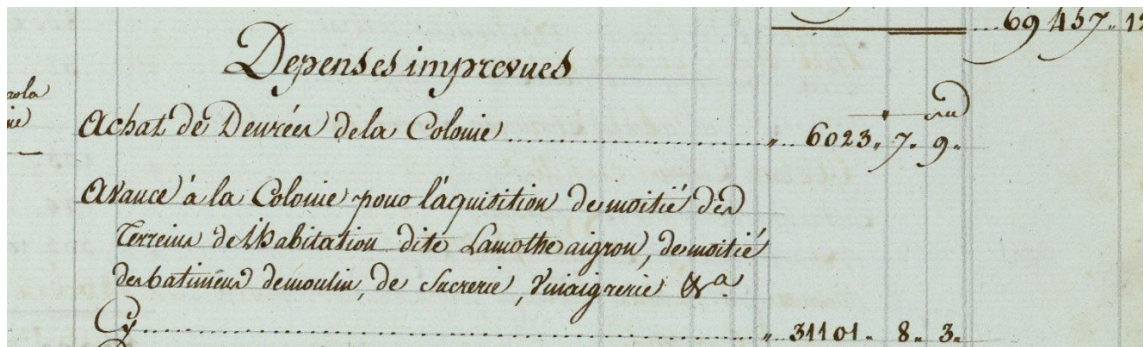 69457. 12
Depenses imprevues
Achat de Denrées de la Colonie ........ " 6023. 7. 9.
Avance à la Colonie pour l'aquisition de moitié des
Terreins de l'habitation dite Lamothe aigron, de moitié
des batimens de moulin, de Sucrerie, Vinaigrerie &a.
Cy ........ " 31101. 8. 3.